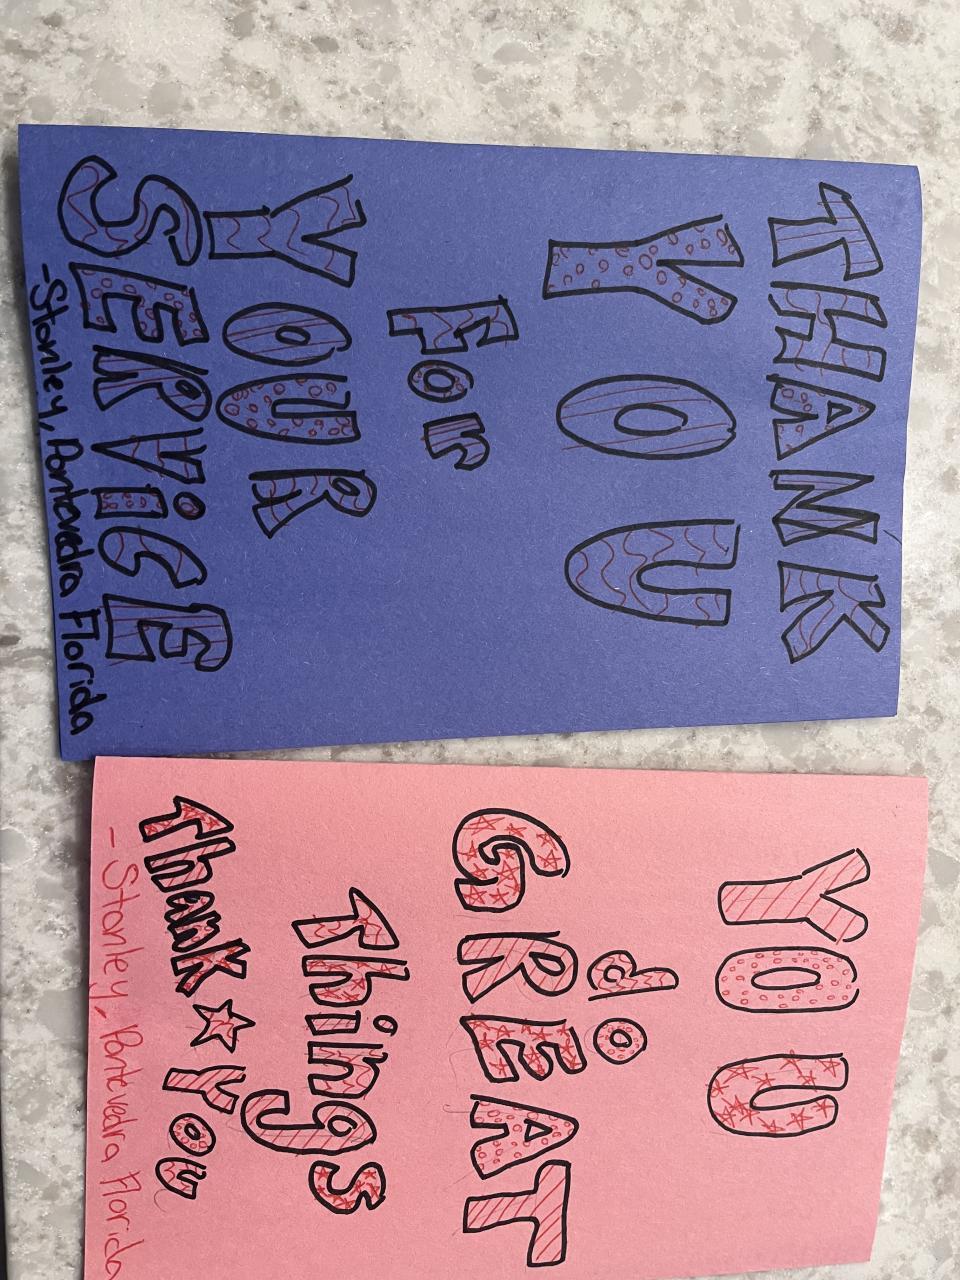 THANK
YOU
For
YOUR
SERViCE
-Stanley, Pontevedra Florida
YOU
do
GREAT
Things
Thank ☆ You
- Stanley, Pontevedra Florida